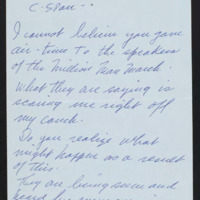 C-Span --
I cannot believe you gave
air-time to the speakers
of the Million Man March.
What they are saying is
scaring me right off
my couch.
Do you realize what
might happen as a result
of this.
They are being seen and
heard